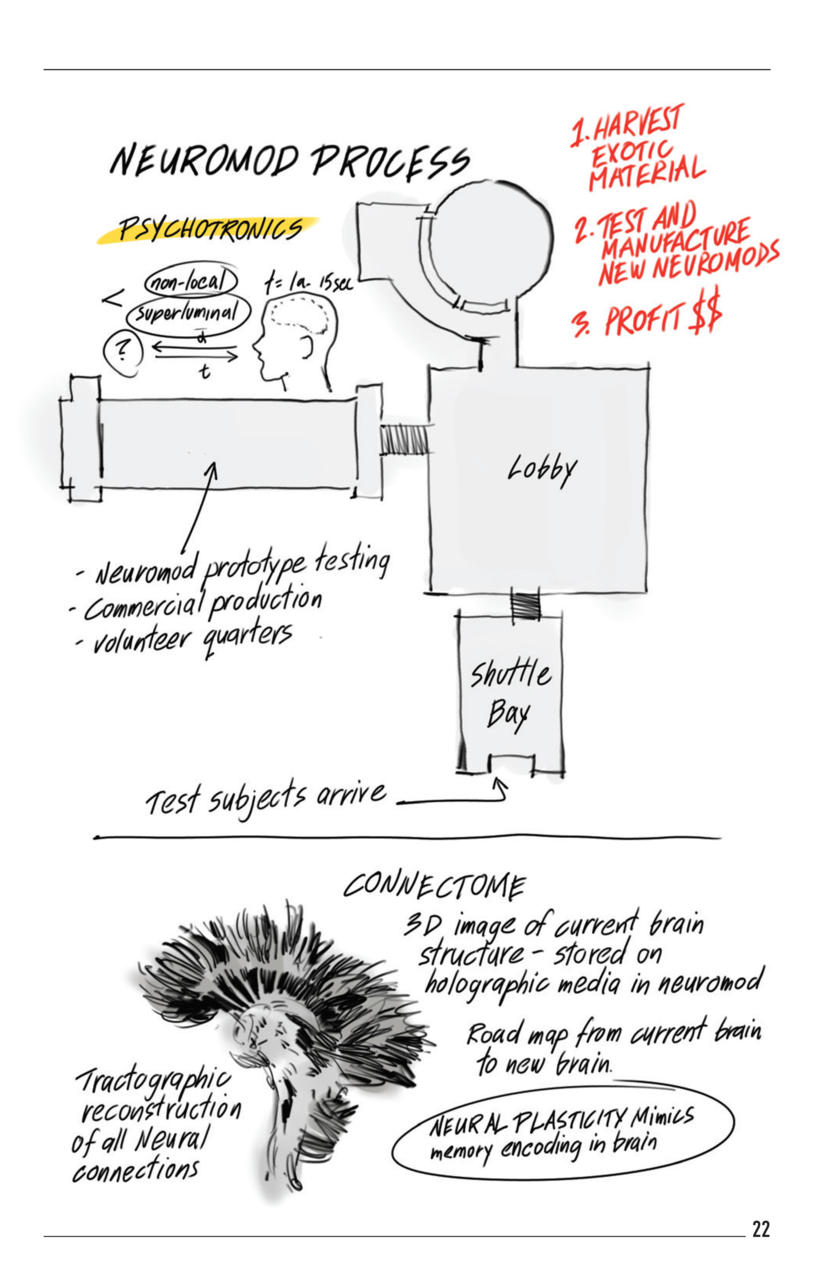 NEUROMOD PROCESS
1. HARVEST
EXOTIC
MATERIAL
2. TEST AND
MANUFACTURE
NEW NEUROMODS
3. PROFIT $$
PSYCHOTRONICS
< non-local
superluminal
?
d
t
Lobby
- Neuromod prototype testing
- Commercial production
- Volunteer quarters
Shuttle
Bay
Test subjects arrive
CONNECTOME
3D image of current brain
structure - stored on
holographic media in neuromod
Road map from current brain
to new brain.
Tractographic
reconstruction
of all Neural
connections
NEURAL PLASTICITY Mimics
memory encoding in brain
22